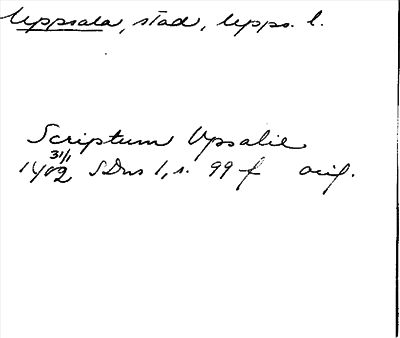 Uppsala, stad, Upps. l.
Scriptum Upsalie
31/1
1402 SDns 1, s. 99 f orig.